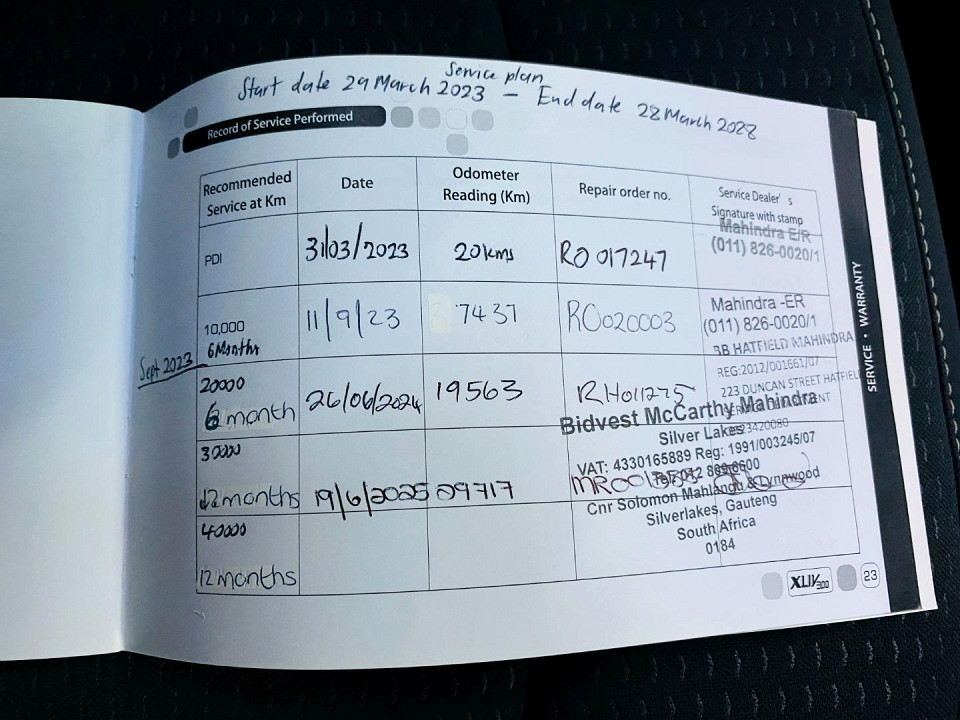 Service plan
Start date 29 March 2023 – End date 28 March 2028
Record of Service Performed
Recommended Service at Km
Date
Odometer Reading (Km)
Repair order no.
Service Dealer's Signature with stamp
PDI
31/03/2023
20kms
RO 017247
Mahindra E/R
(011) 826-0020/1
10,000
6 Months
11/9/23
7437
RO020003
Mahindra -ER
(011) 826-0020/1
Sept 2023
BB HATFIELD MAHINDRA
REG:2012/001661/07
223 DUNCAN STREET HATFIEL
20000
6 month
26/06/2024
19563
RH011275
Bidvest McCarthy Mahindra
Silver Lakes
VAT: 4330165889 Reg: 1991/003245/07
30000
12 months
19/6/2025
29717
Cnr Solomon Mahlangu & Lynnwood
Silverlakes, Gauteng
South Africa
0184
40000
12 months
SERVICE • WARRANTY
XUV300
23